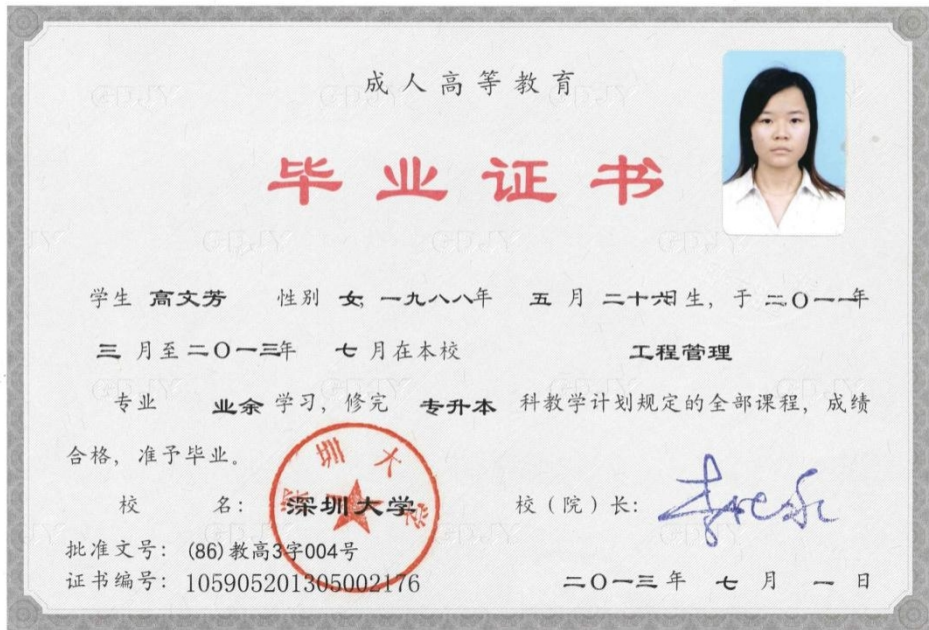 成人高等教育
毕业证书
学生 高文芳 性别 女, 一九八八年 五 月 二十六日生, 于 二〇一一年
三 月至 二〇一三年 七 月在本校 工程管理
专业 业余 学习, 修完 专升本 科教学计划规定的全部课程, 成绩
合格, 准予毕业。
深圳大学
校 名: 深圳大学 校（院）长:
批准文号: (86)教高3字004号
证书编号: 105905201305002176 二〇一三年 七 月 一 日
GDJY